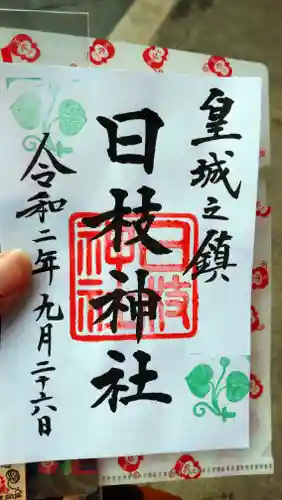 皇城之鎮
日枝神社
日枝神社
令和二年九月二十六日